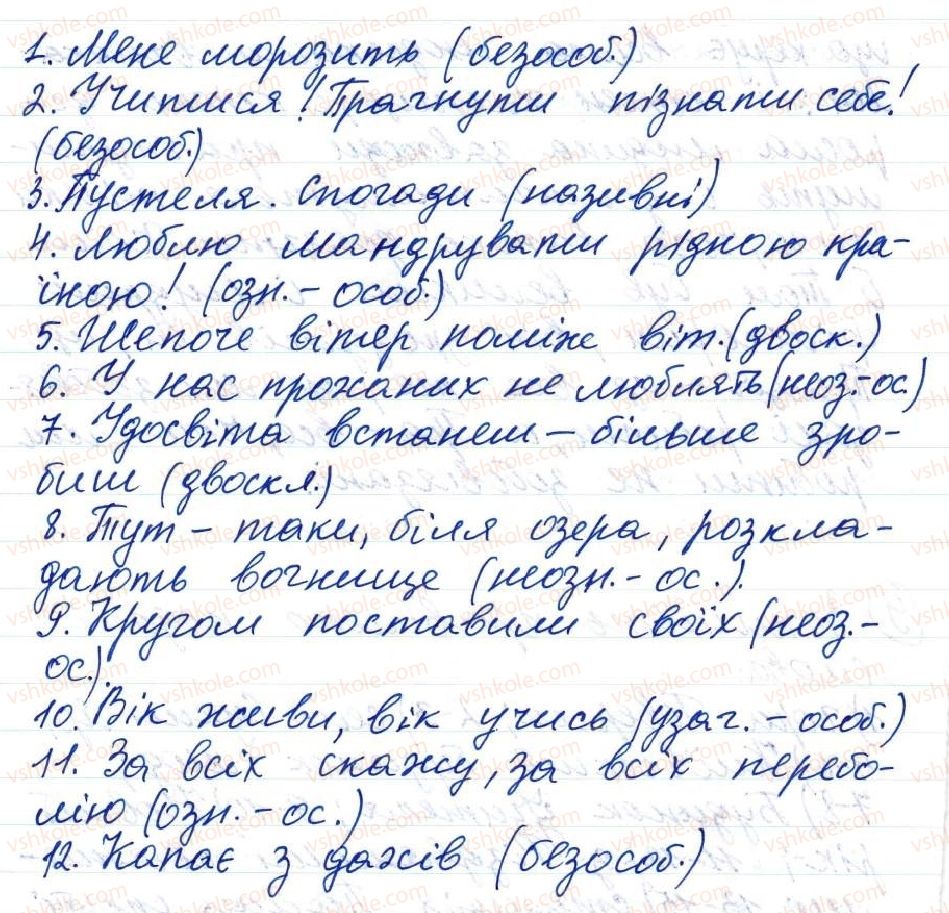 1. Мене морозить (безособ.)
2. Учитися! Прагнути пізнати себе!
(безособ.)
3. Пустеля. Спогади (називні)
4. Люблю мандрувати рідною кра-
їною! (озн.- особ.)
5. Шепоче вітер поміж віт. (двоск.)
6. У нас прожаних не люблять (неоз.-ос.)
7. Удосвіта встанеш – більше зро-
биш (двоскл.)
8. Тут - таки, біля озера, розкла-
дають вогнище (неозн.- ос.).
9. Кругом поставили своїх (неоз.-
ос.).
10. Вік живи, вік учись (узаг. - особ.)
11. За всіх скажу, за всіх перебо-
лію (озн. - ос.)
12. Капає з дахів (безособ.)